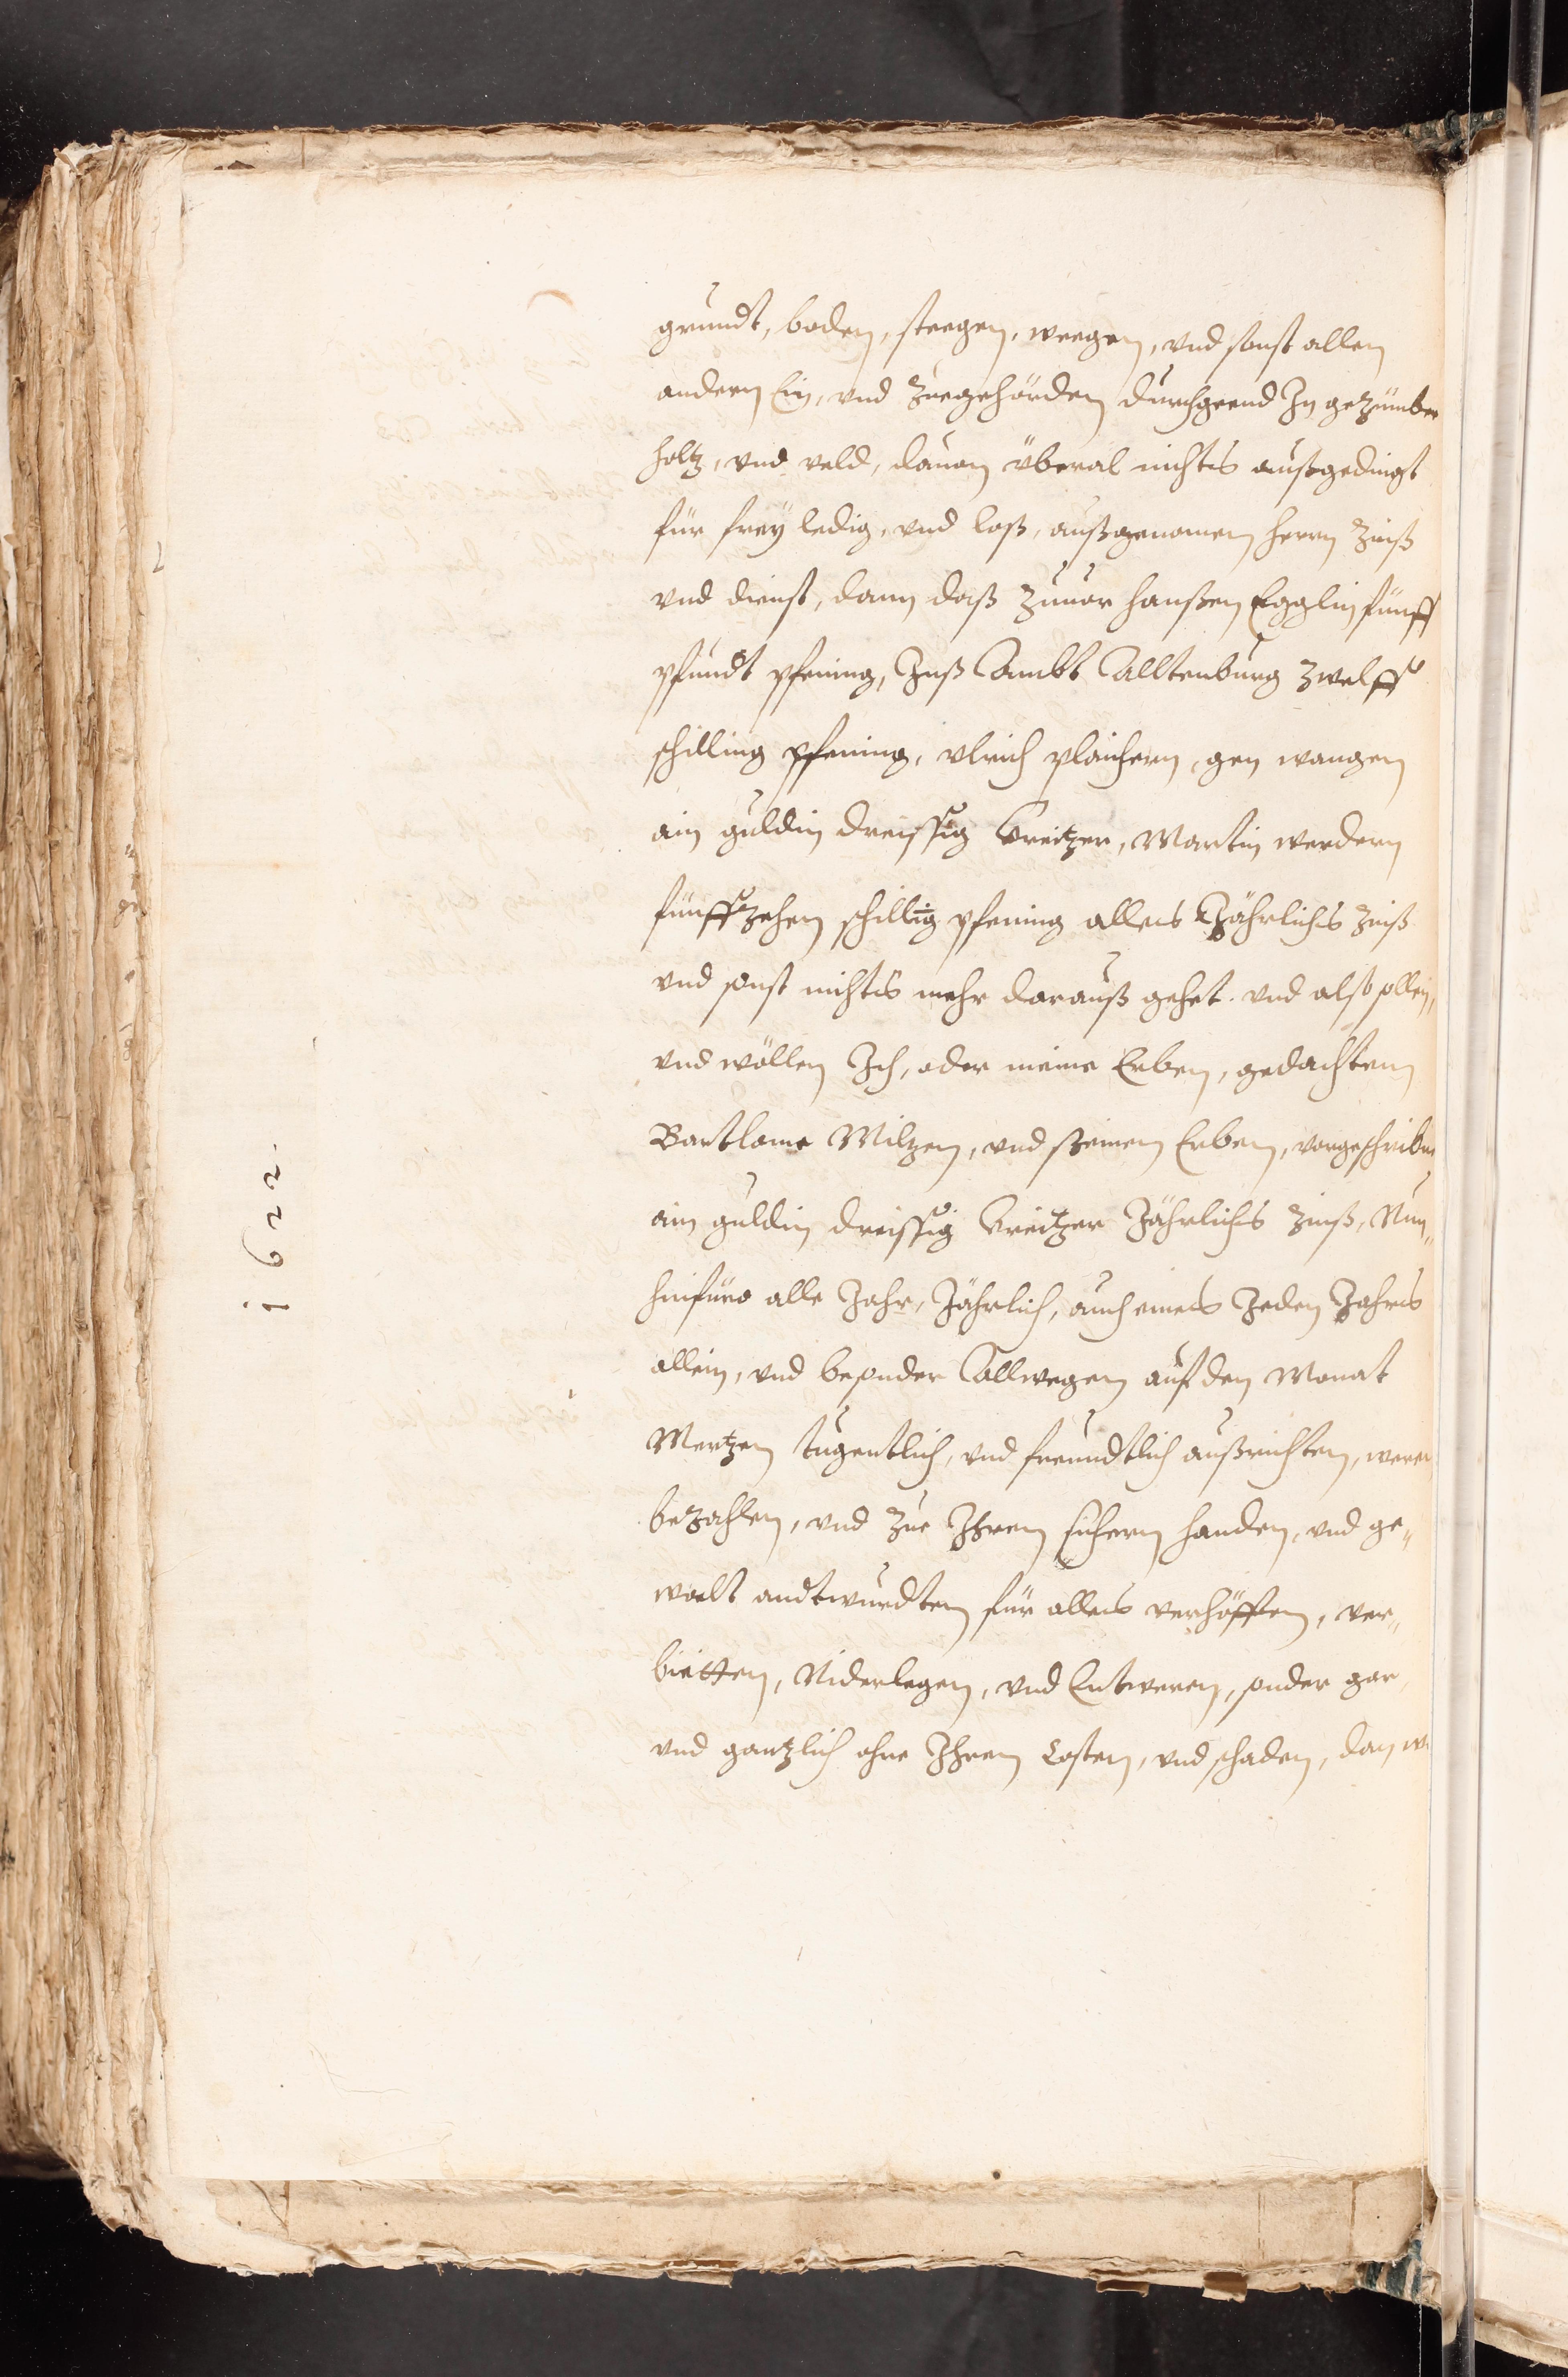 grundt, boden, steegen, weegen, vnd sonst allen
andern Ein, vnd Zuegehörden durchgeend In gezimber
holtz, vnd veld, dauon überal nichts außgedingt
für freÿ ledig, vnd loß, außgenomen herrn Zinß
vnd dienst, dann daß zuuor hanßen Egglin fünff
pfundt pfening, Inß Ambt Alltenburg zwelff
schilling pfening, vlrich plaichern, gen wangen
ain guldin dreissig Creitzer, Martin werdern
fünffzehen schillig pfening alles Jährlichs Zinß
vnd sonst nichts mehr darauß gehet. vnd also sollen,
vnd wöllen Ich, oder meine Erben, gedachtem
Bartlome Milzen, vnd seinen Erben, vorgeschriben
ain guldin dreissig Creitzer Jährlichs Zinß, Nun„
hinfüro alle Jahr, Jährlich, auch eines Jeden Jahrs
allein, vnd besonder Allwegen auf den Monat
Mertzen tugentlich, vnd freundtlich außrichten, weren
bezahlen, vnd Zue Ihren sichern handen, vnd ge„
walt andtwurdten für alles verhöfften, ver„
bietten, Niderlegen, vnd Entweren, sonder gar,
vnd gantzlich ohne Ihren Costen, vnd schaden, dan
1622.